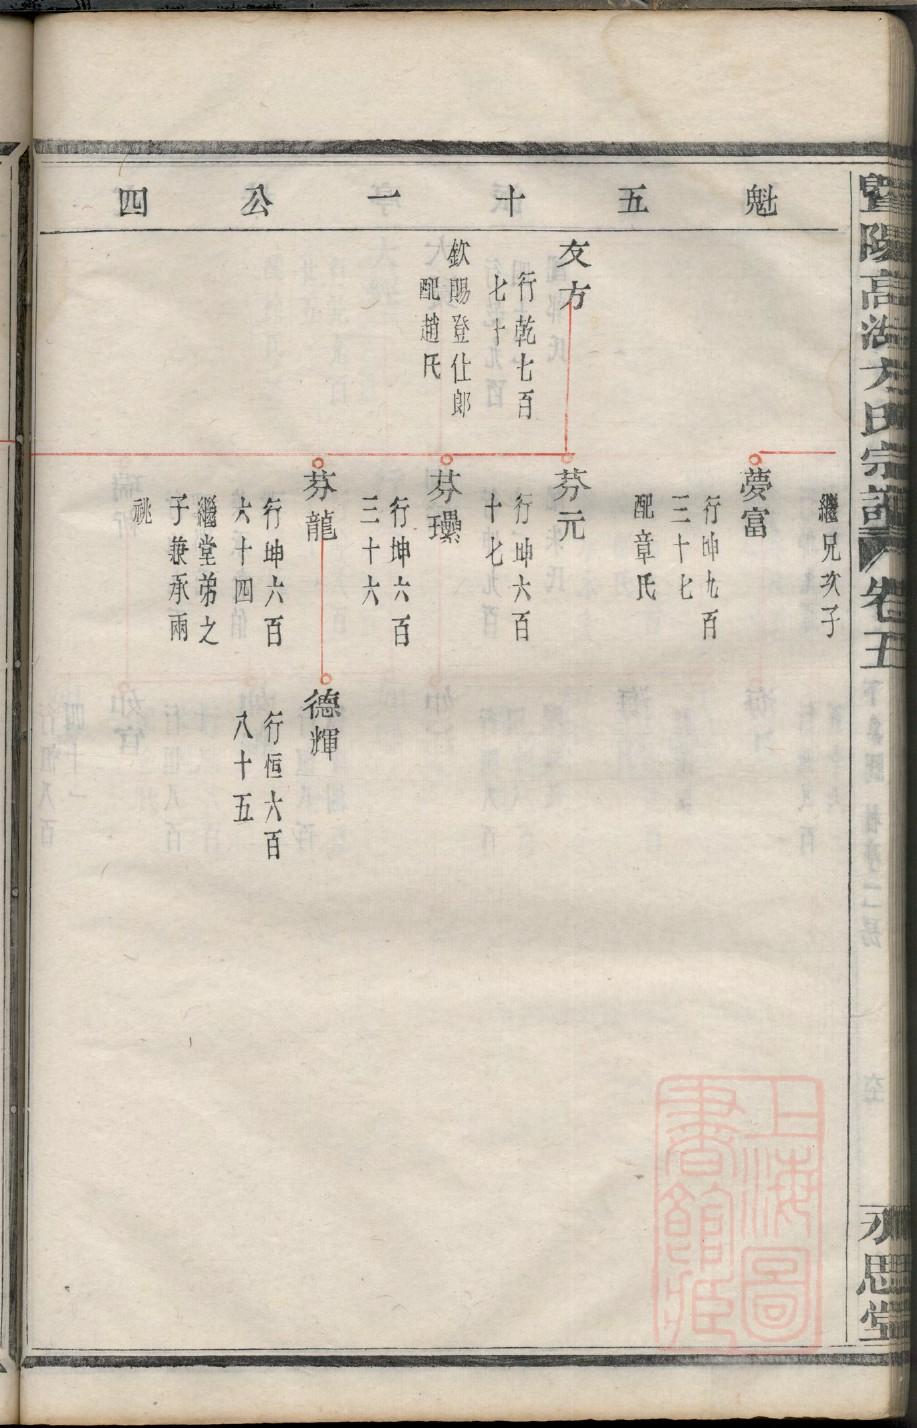 暨陽高湖方氏宗譜
卷五
永思堂
魁五十一公四
繼兄次子
夢富
行坤九百
三十七
配章氏
友方
行乾七百
七十
欽賜登仕郎
配趙氏
芬元
行坤六百
十七
芬瓘
行坤六百
三十六
芬龍
行坤六百
六十四
繼堂弟之
子兼承兩
祧
德輝
行恒六百
八十五
上海圖
書館藏